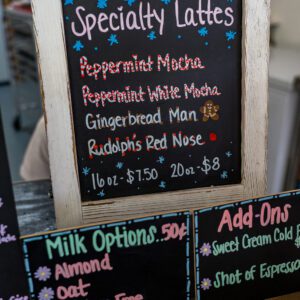 Specialty Lattes
Peppermint Mocha
Peppermint White Mocha
Gingerbread Man
Rudolph's Red Nose
16oz-$7.50 20oz-$8
Milk Options 50¢
Almond
Oat
Free
Add-Ons
Sweet Cream Cold
Shot of Espresso